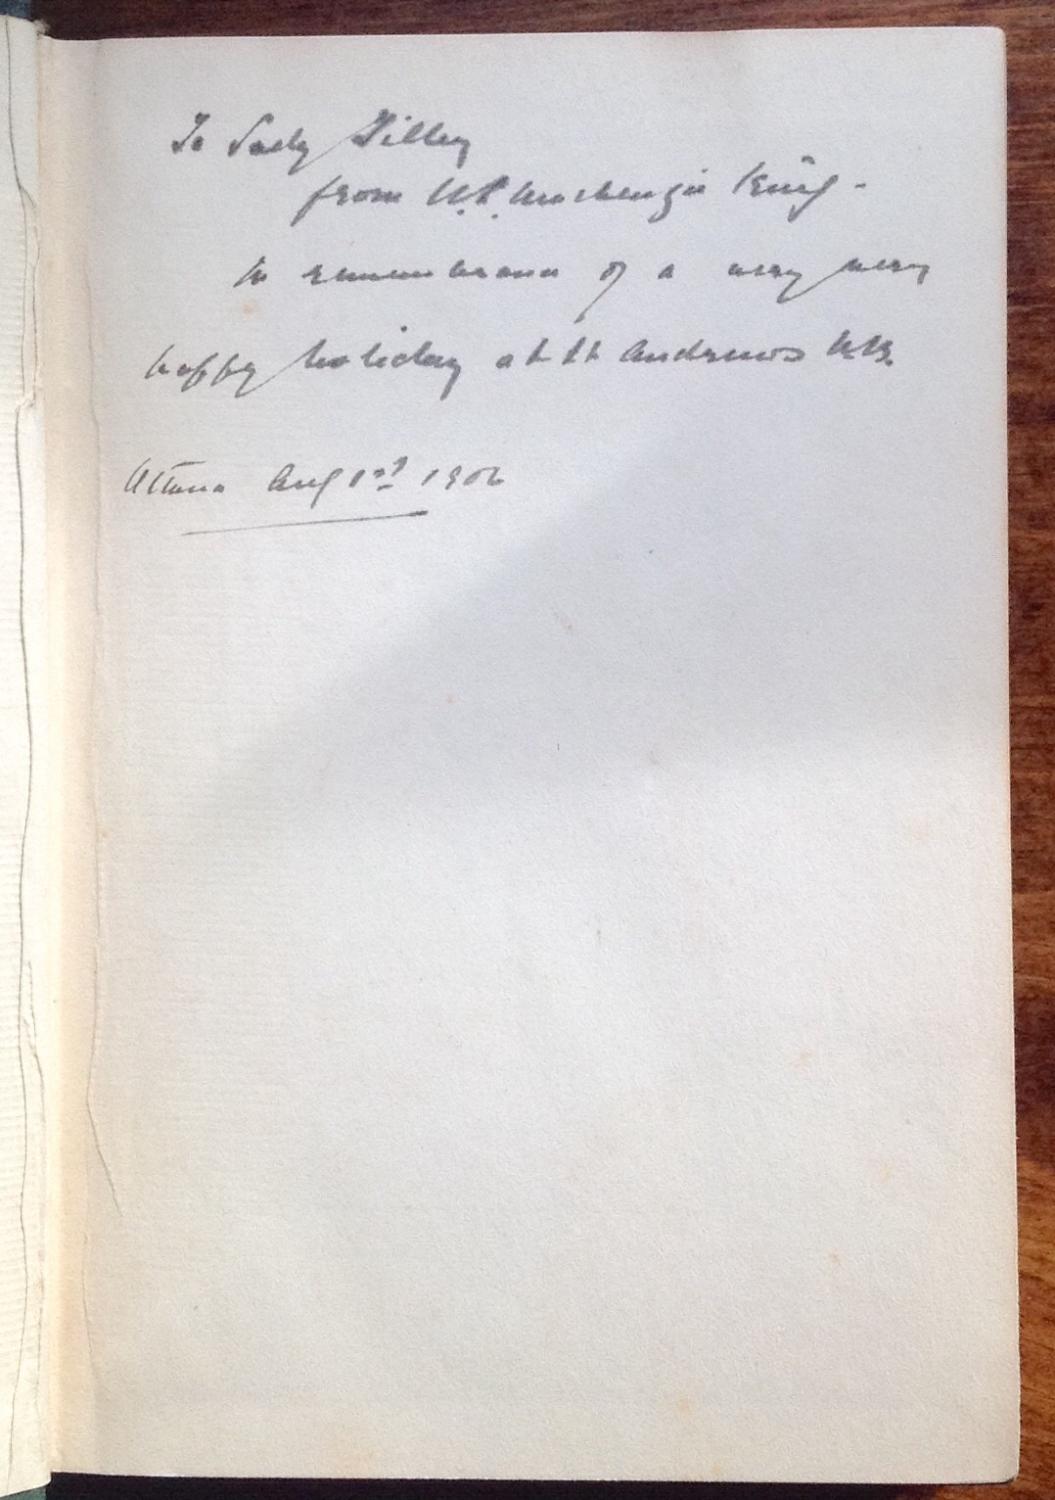 To Lady Tilley
from W.L. Mackenzie King -
In remembrance of a very very
happy holiday at St Andrews N.B.
Ottawa Aug 1st 1902